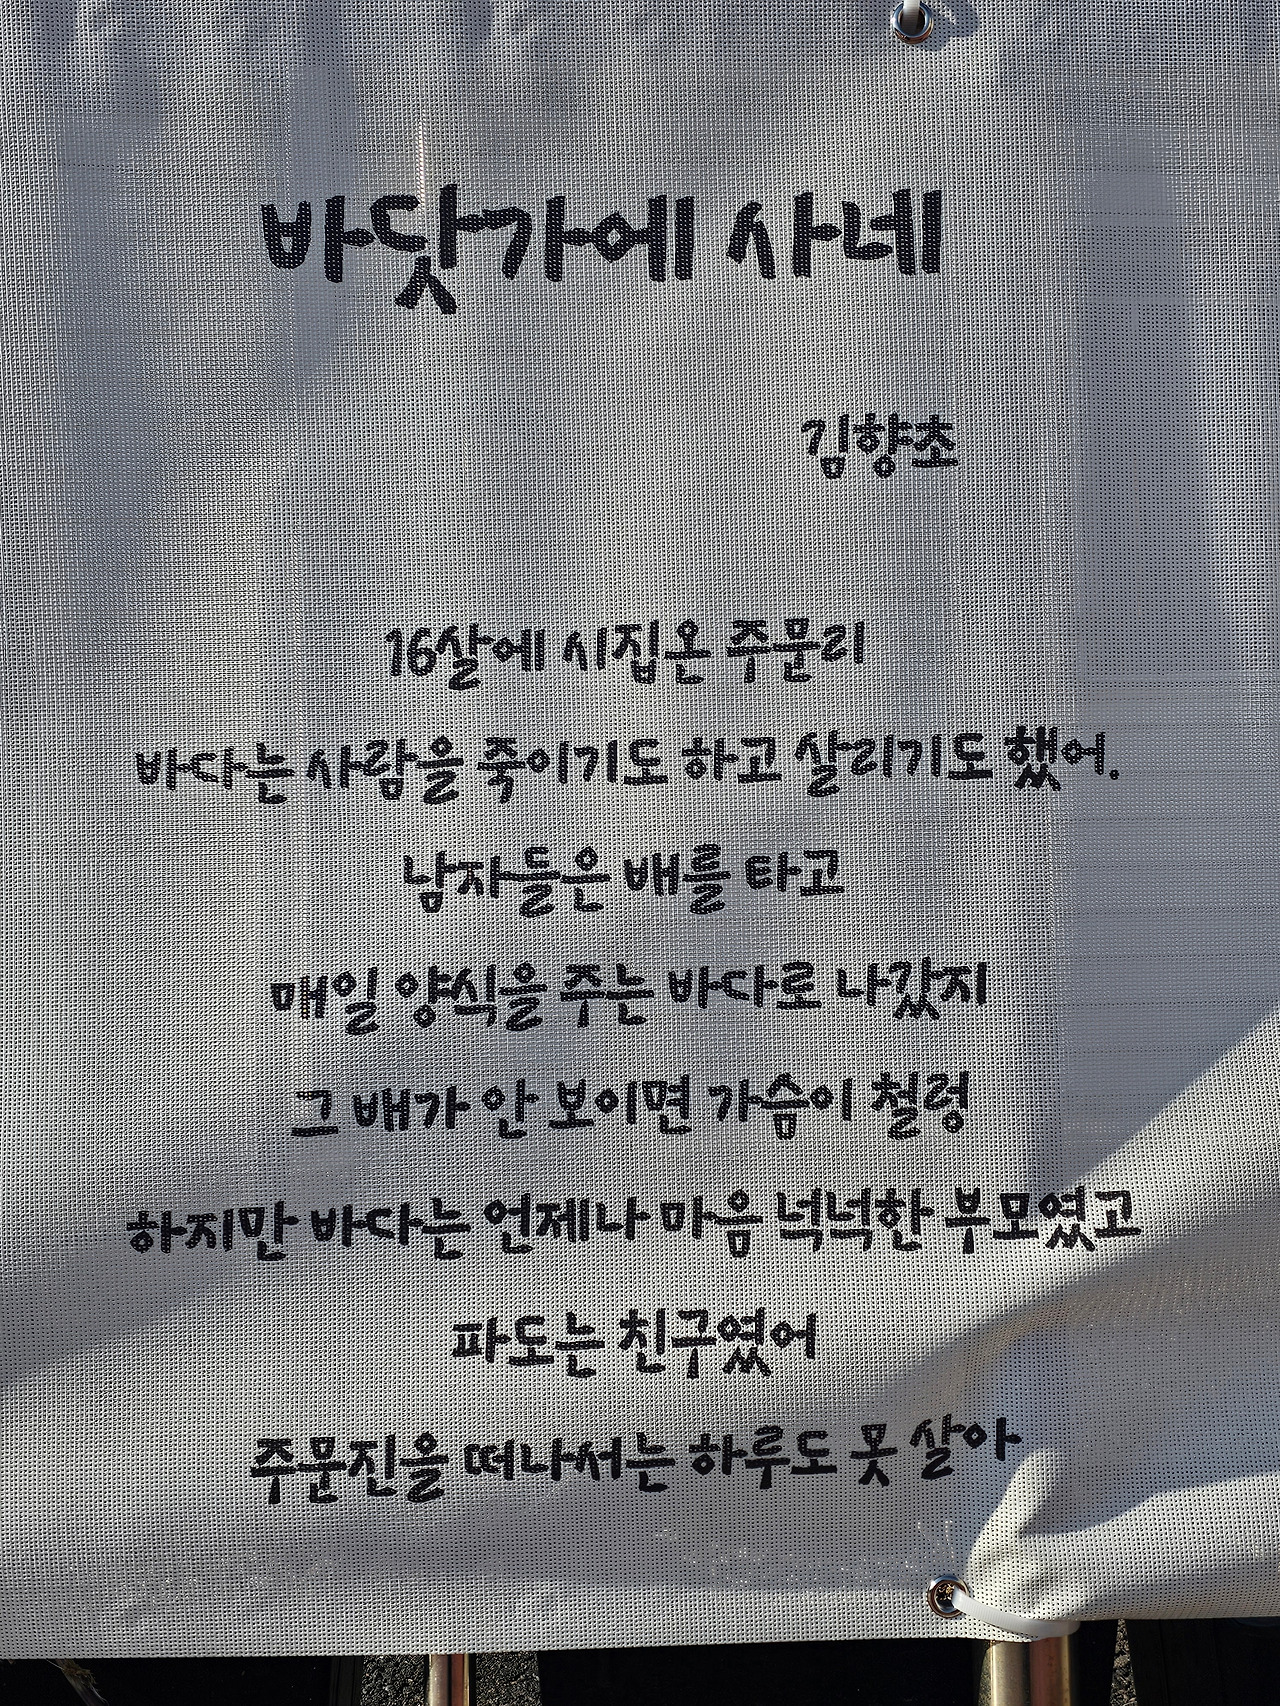 바닷가에 사네
김향초
16살에 시집온 주문리
바다는 사람을 죽이기도 하고 살리기도 했어.
남자들은 배를 타고
매일 양식을 주는 바다로 나갔지
그 배가 안 보이면 가슴이 철렁
하지만 바다는 언제나 마음 넉넉한 부모였고
파도는 친구였어
주문진을 떠나서는 하루도 못 살아